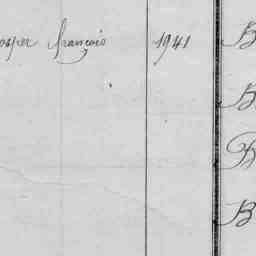 osper françois 1941 B
B
B
B